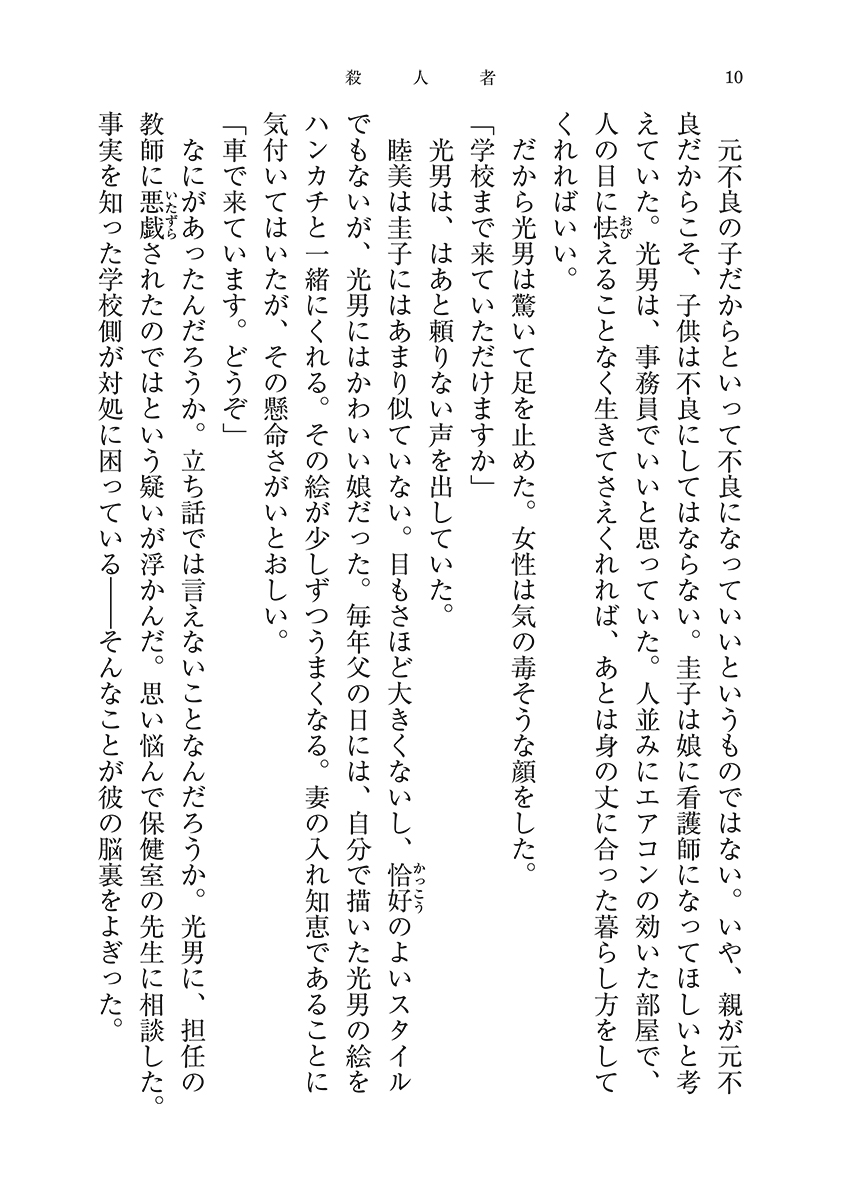 殺人者
10
元不良の子だからといって不良になっていいというものではない。いや、親が元不
良だからこそ、子供は不良にしてはならない。圭子は娘に看護師になってほしいと考
えていた。光男は、事務員でいいと思っていた。人並みにエアコンの効いた部屋で、
人の目に怯えることなく生きてさえくれれば、あとは身の丈に合った暮らし方をして
くれればいい。
だから光男は驚いて足を止めた。女性は気の毒そうな顔をした。
「学校まで来ていただけますか」
光男は、はあと頼りない声を出していた。
睦美は圭子にはあまり似ていない。目もさほど大きくないし、恰好のよいスタイル
でもないが、光男にはかわいい娘だった。毎年父の日には、自分で描いた光男の絵を
ハンカチと一緒にくれる。その絵が少しずつうまくなる。妻の入れ知恵であることに
気付いてはいたが、その懸命さがいとおしい。
「車で来ています。どうぞ」
なにがあったんだろうか。立ち話では言えないことなんだろうか。光男に、担任の
教師に悪戯されたのではという疑いが浮かんだ。思い悩んで保健室の先生に相談した。
事実を知った学校側が対処に困っている――そんなことが彼の脳裏をよぎった。
おび
かっこう
いたずら